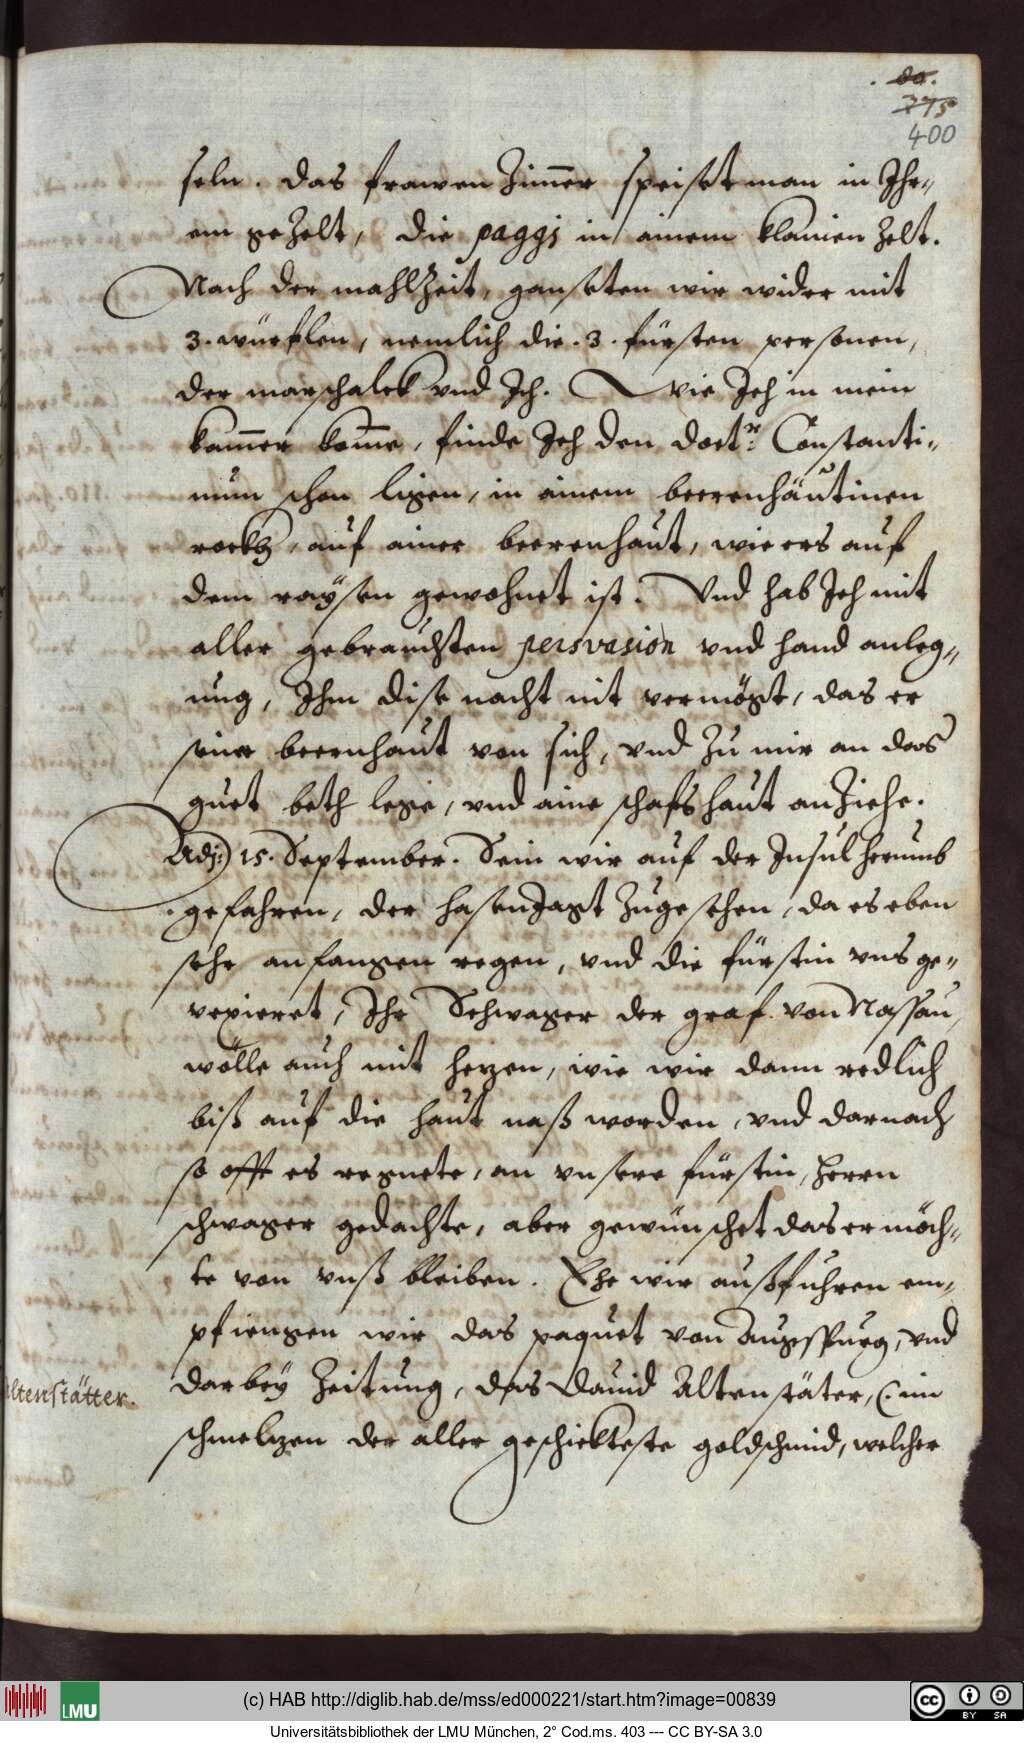 80.
375
400
seln. Das frawen Zimmer speiset man in Ihr„
em geZelt, die paggi in ainem klainen Zelt.
Nach der mahlZeit, ganseten wir wider mit
3. würflen, nemlich die. 3. fürsten personen,
der marschalck vnd Ich. Wie Ich in mein
kam̄er kom̄e, finde Ich den doctr: Constanti„
num schon ligen, in ainem beerenhäutinen
rockh, auf ainer beerenhaut, wie ers auf
dem raÿsen gewohnet ist. Vnd hab Ich mit
aller gebrauchten persvasion vnd hand anleg„
ung, Ihm dise nacht nit vermögt, das er
seine beernhaut von sich, vnd Zu mir an das
guet beth lege, vnd aine schafshaut anZiehe.
Adj: 15. September. Sein wir auf der Insul herumb
gefahren, der hasenJagt Zugesehen, da es eben
sehr anfangen regen, vnd die fürstin vns ge„
vexieret, Ihr Schwager der graf von Nassau,
wölle auch mit hezen, wie wir dann redlich
biß auf die haut naß worden, vnd darnach
so offt es regnete, an vnsere fürstin, herrn
schwager gedachte, aber gewünschet das er möch„
te von vnß bleiben. Ehe wir außfuhren em„
pfiengen wir das paquet von Augspurg, vnd
darbeÿ Zeitung, das Dauid Altenstäter, (: im
schmelzen der aller geschickteste goldschmid, welcher
altenstätter.
(c) HAB http://diglib.hab.de/mss/ed000221/start.htm?image=00839
Universitätsbibliothek der LMU München, 2° Cod.ms. 403 --- CC BY-SA 3.0
LMU
cc BY SA